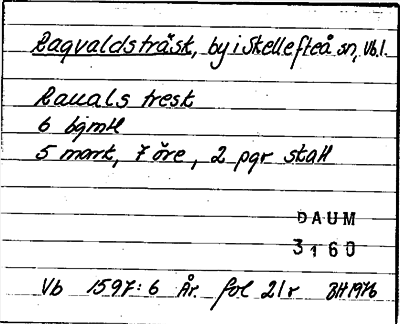 Ragvaldsträsk, by i Skellefteå sn, Vb.l.
Rauals tresk
6 bgmtl
5 mark, 7 öre, 2 pgr skatt
DAUM
3160
Vb 1597:6 År. fol 21r BH 1976